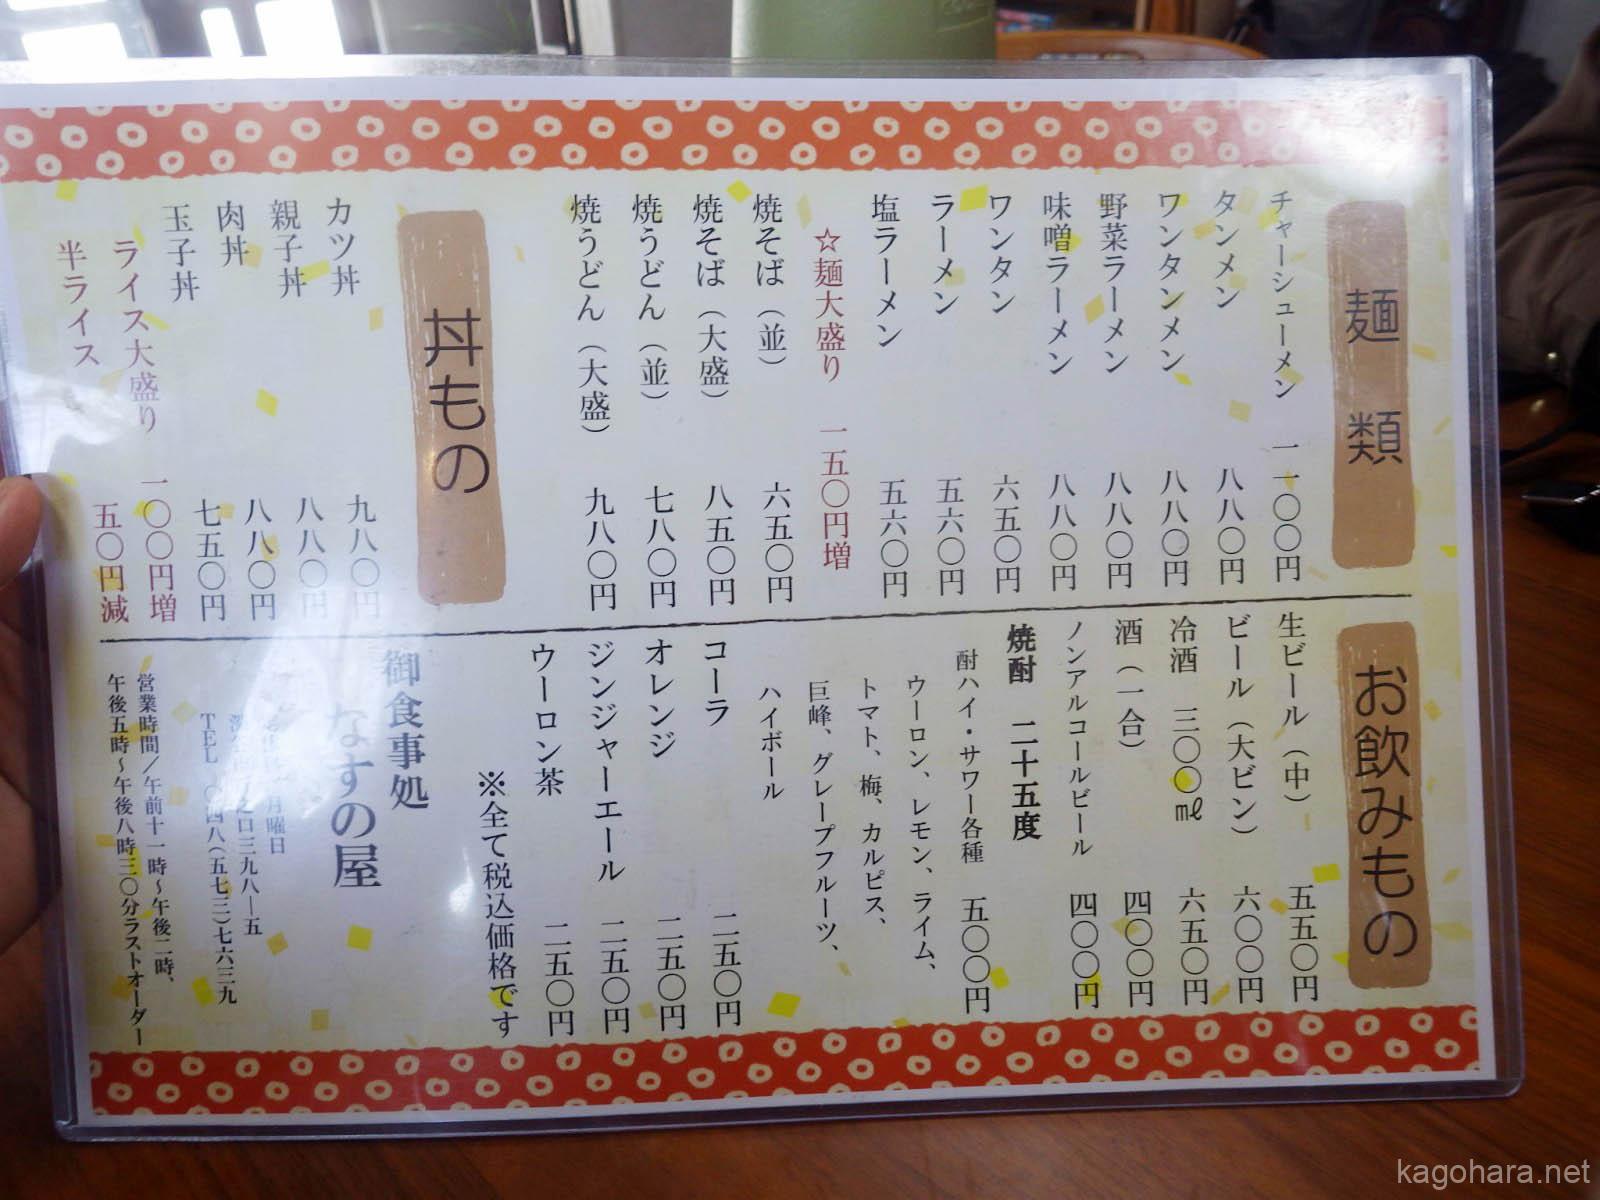 麺類
チャーシューメン 一一〇〇円
タンメン 八八〇円
ワンタンメン 八八〇円
野菜ラーメン 八八〇円
味噌ラーメン 八八〇円
ワンタン 六五〇円
ラーメン 五六〇円
塩ラーメン 五六〇円
☆麺大盛り 一五〇円増
焼そば(並) 六五〇円
焼そば(大盛) 八五〇円
焼うどん(並) 七八〇円
焼うどん(大盛) 九八〇円
丼もの
カツ丼 九八〇円
親子丼 八八〇円
肉丼 八八〇円
玉子丼 七五〇円
ライス大盛り 一〇〇円増
半ライス 五〇円減
お飲みもの
生ビール(中) 五五〇円
ビール(大ビン) 六〇〇円
冷酒 三〇〇㎖ 六五〇円
酒(一合) 四〇〇円
ノンアルコールビール 四〇〇円
焼酎 二十五度
酎ハイ・サワー各種 五〇〇円
ウーロン、レモン、ライム、
トマト、梅、カルピス、
巨峰、グレープフルーツ、
ハイボール
コーラ 二五〇円
オレンジ 二五〇円
ジンジャーエール 二五〇円
ウーロン茶 二五〇円
※全て税込価格です
御食事処
なすの屋
月曜日
三九八―五
TEL 〇四八(五七三)七六三九
営業時間/午前十一時~午後二時、
午後五時~午後八時三〇分ラストオーダー
kagohara.net